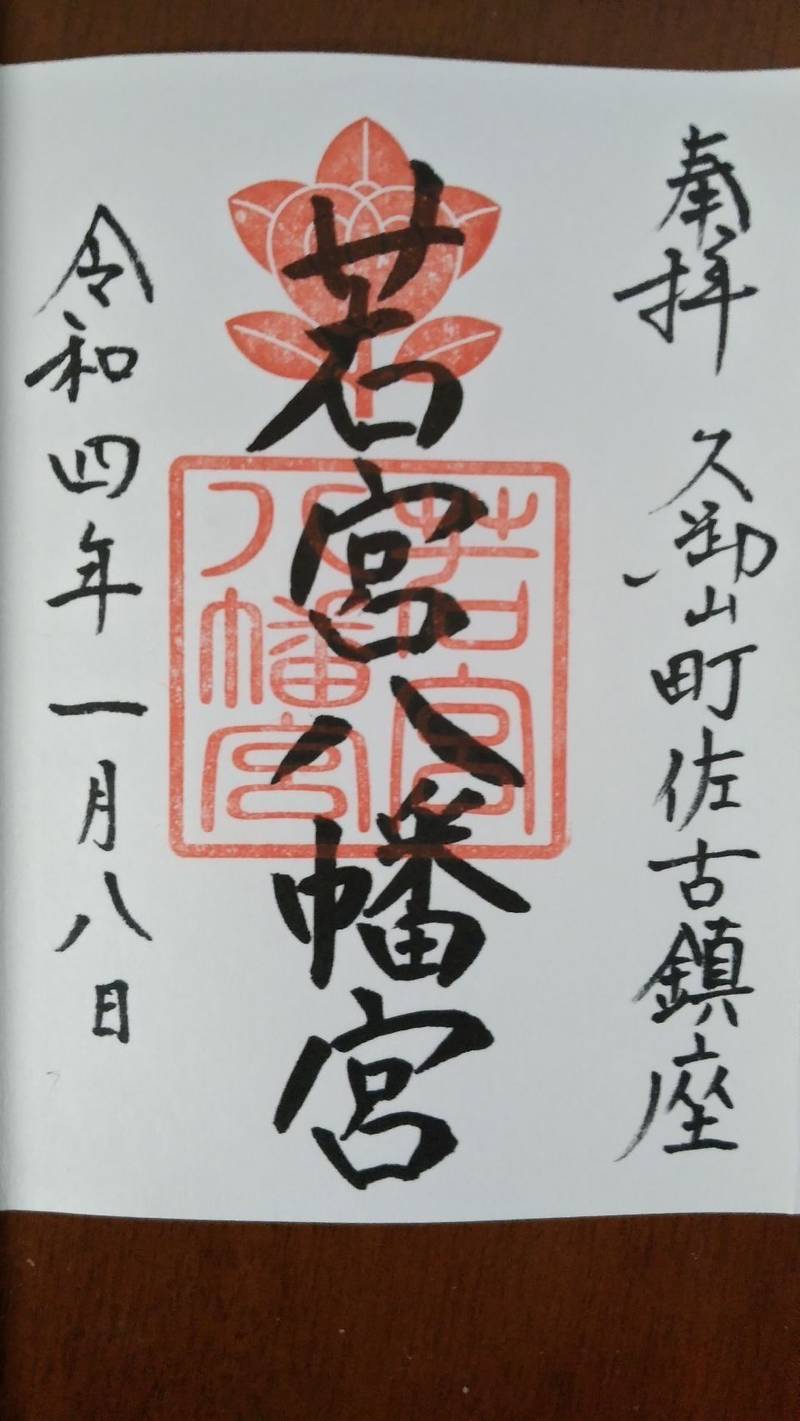 奉拝 久御山町佐古鎮座
若宮八幡宮
若宮
八幡宮
令和四年一月八日